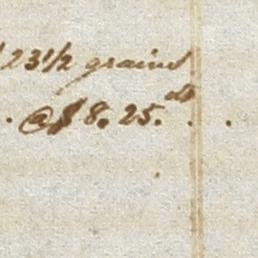 23 1/2 grains
@ $ 8. 25. cts